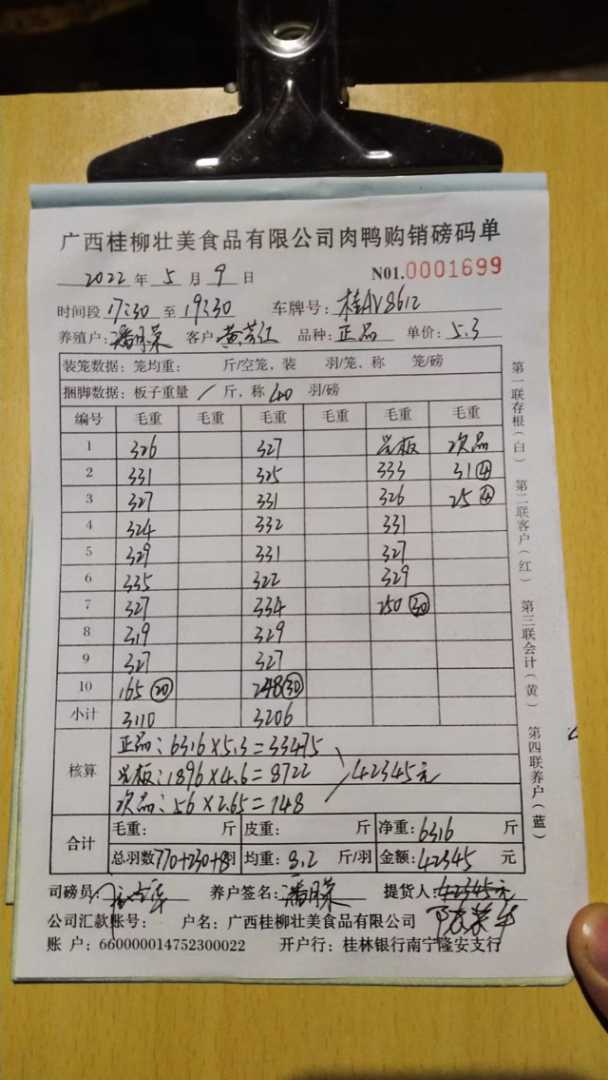 广西桂柳壮美食品有限公司肉鸭购销磅码单
2022年5月9日 N01.0001699
时间段17:30至19:30 车牌号:桂AV8612
养殖户: 客户黄芳江 品种:正品 单价:5.3
装笼数据:笼均重: 斤/空笼、装 羽/笼、称 笼/磅
捆脚数据:板子重量 / 斤,称40羽/磅
编号 毛重 毛重 毛重 毛重 毛重 毛重
1 326 327 光板 次品
2 331 325 333 31④
3 327 331 326 25④
4 324 332 331
5 329 331 327
6 335 322 329
7 327 334 250㉚
8 319 329
9 327 327
10 165⑳ 248㉚
小计 3110 3206
核算 正品:6316×5.3=33475
光板:1896×4.6=8722 42345元
次品:56×2.65=148
合计 毛重: 斤 皮重: 斤 净重:6316斤
总羽数770+230+8羽 均重:3.2斤/羽 金额:42345元
司磅员 养户签名: 提货人:42345元
公司汇款帐号: 户名:广西桂柳壮美食品有限公司
账 户:660000014752300022 开户行:桂林银行南宁隆安支行
第一联存根(白) 第二联客户(红) 第三联会计(黄) 第四联养户(蓝)